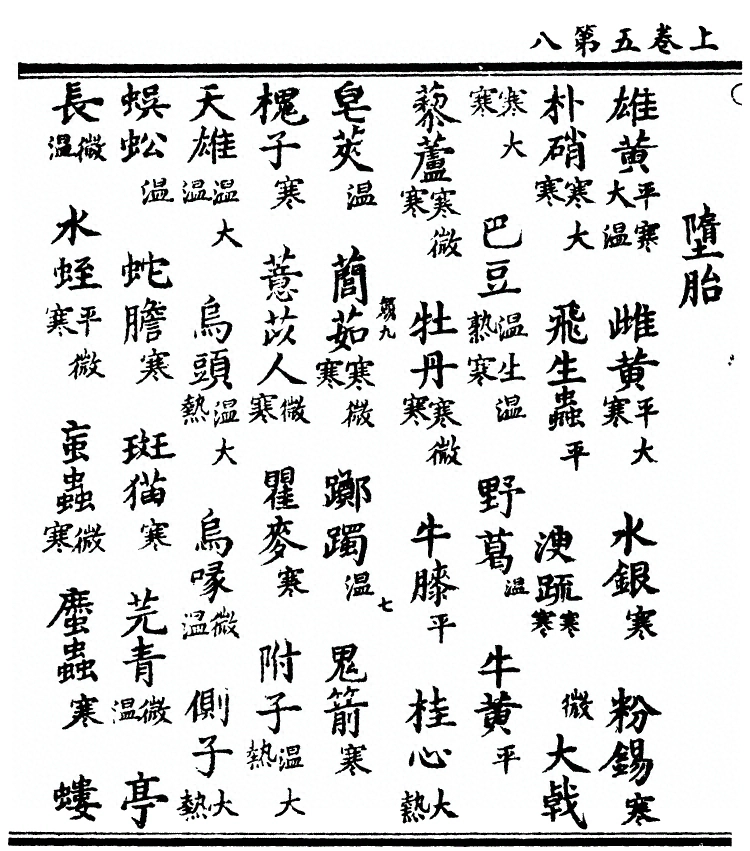 上卷五第八
墮胎
雄黃平寒大温 雌黃平大寒 水銀寒 粉錫寒
朴硝寒大寒 飛生蟲平 溲䟽寒微寒 大戟
寒大寒 巴豆温生温熱寒 野葛温 牛黃平
藜蘆寒微寒 牡丹寒微寒 牛膝平 桂心大熱
七
皂莢温 䕡茹寒微寒 躑躅温 鬼箭寒
槐子寒 薏苡人微寒 瞿麥寒 附子温大熱
天雄温大温 烏頭温大熱 烏喙微温 側子大熱
蜈蚣温 蛇膽寒 斑猫寒 芫青微温 亭
長微温 水蛭平微寒 䖟蟲微寒 䗪蟲寒 螻